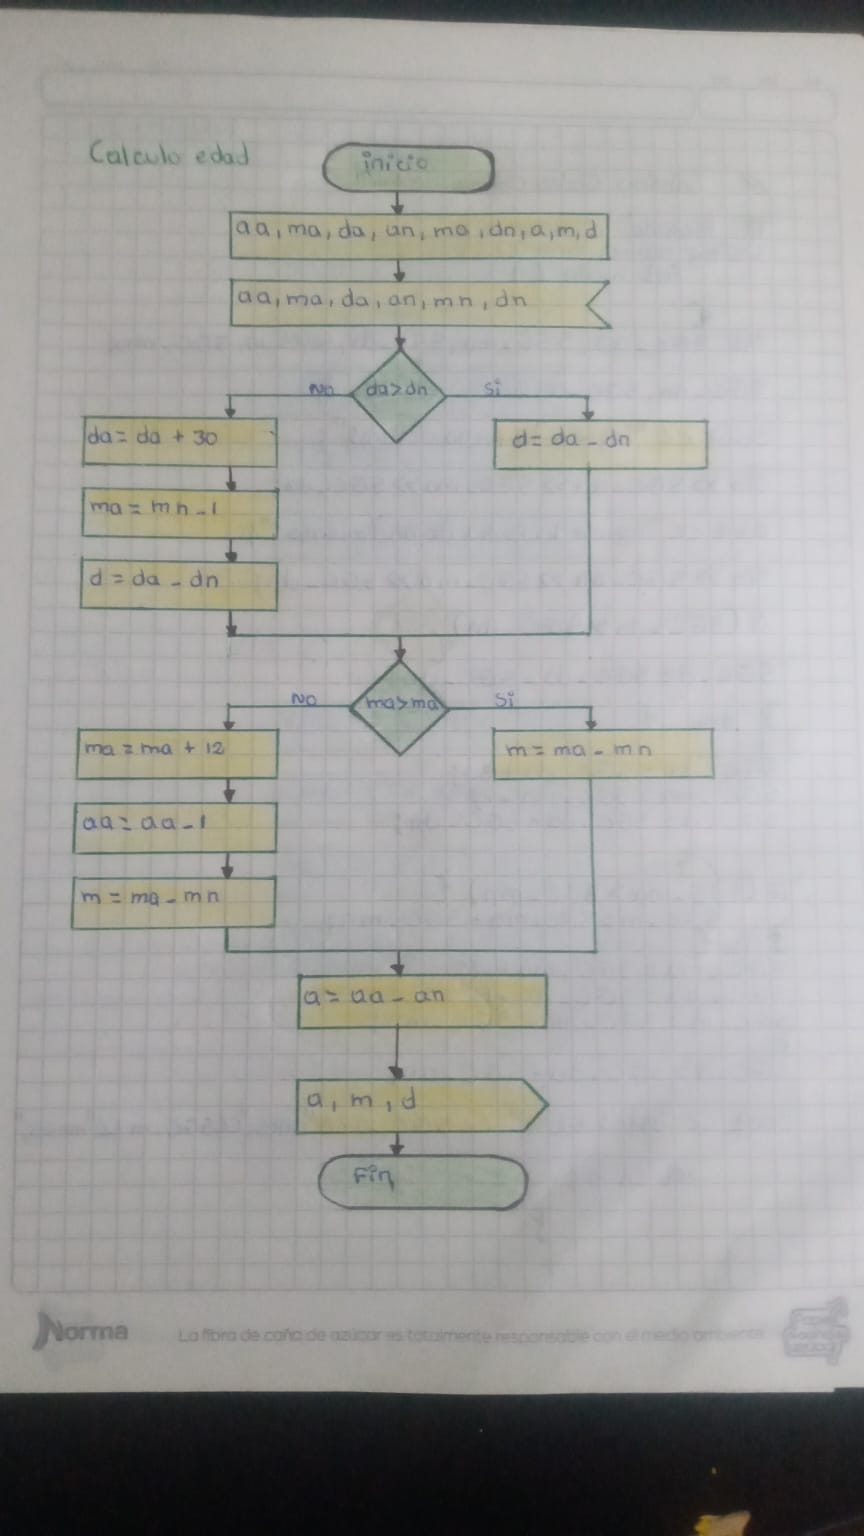 Calculo edad
inicio
aa, ma, da, an, ma, dn, a, m, d
aa, ma, da, an, mn, dn
No
da>dn
Si
da = da + 30
d = da - dn
ma = mn - 1
d = da - dn
No
ma>ma
Si
ma = ma + 12
m = ma - mn
aa = aa - 1
m = ma - mn
a = aa - an
a, m, d
Fin
Norma
La fibra de caña de azúcar es totalmente responsable con el medio ambiente